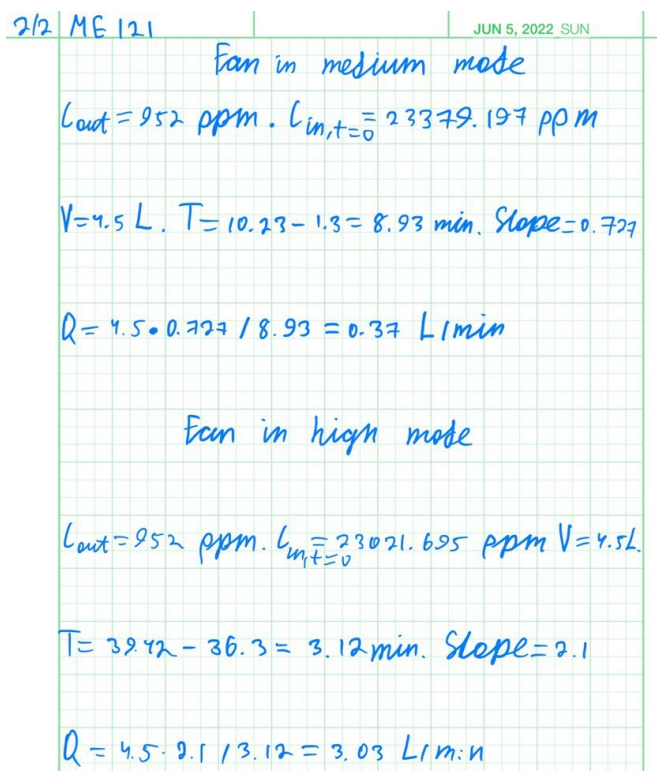 2/2 ME 121 JUN 5, 2022 SUN
Fan in medium mode
Cout = 952 ppm. Cin,t=0 = 23379.197 ppm
V=4.5 L. T= 10.23 - 1.3 = 8.93 min. Slope=0.727
Q = 4.5 • 0.727 / 8.93 = 0.37 L/min
Fan in high mode
Cout = 952 ppm. Cin,t=0 = 23021.695 ppm V=4.5L.
T= 39.42 - 36.3 = 3.12 min. Slope=2.1
Q = 4.5 · 2.1 / 3.12 = 3.03 L/min